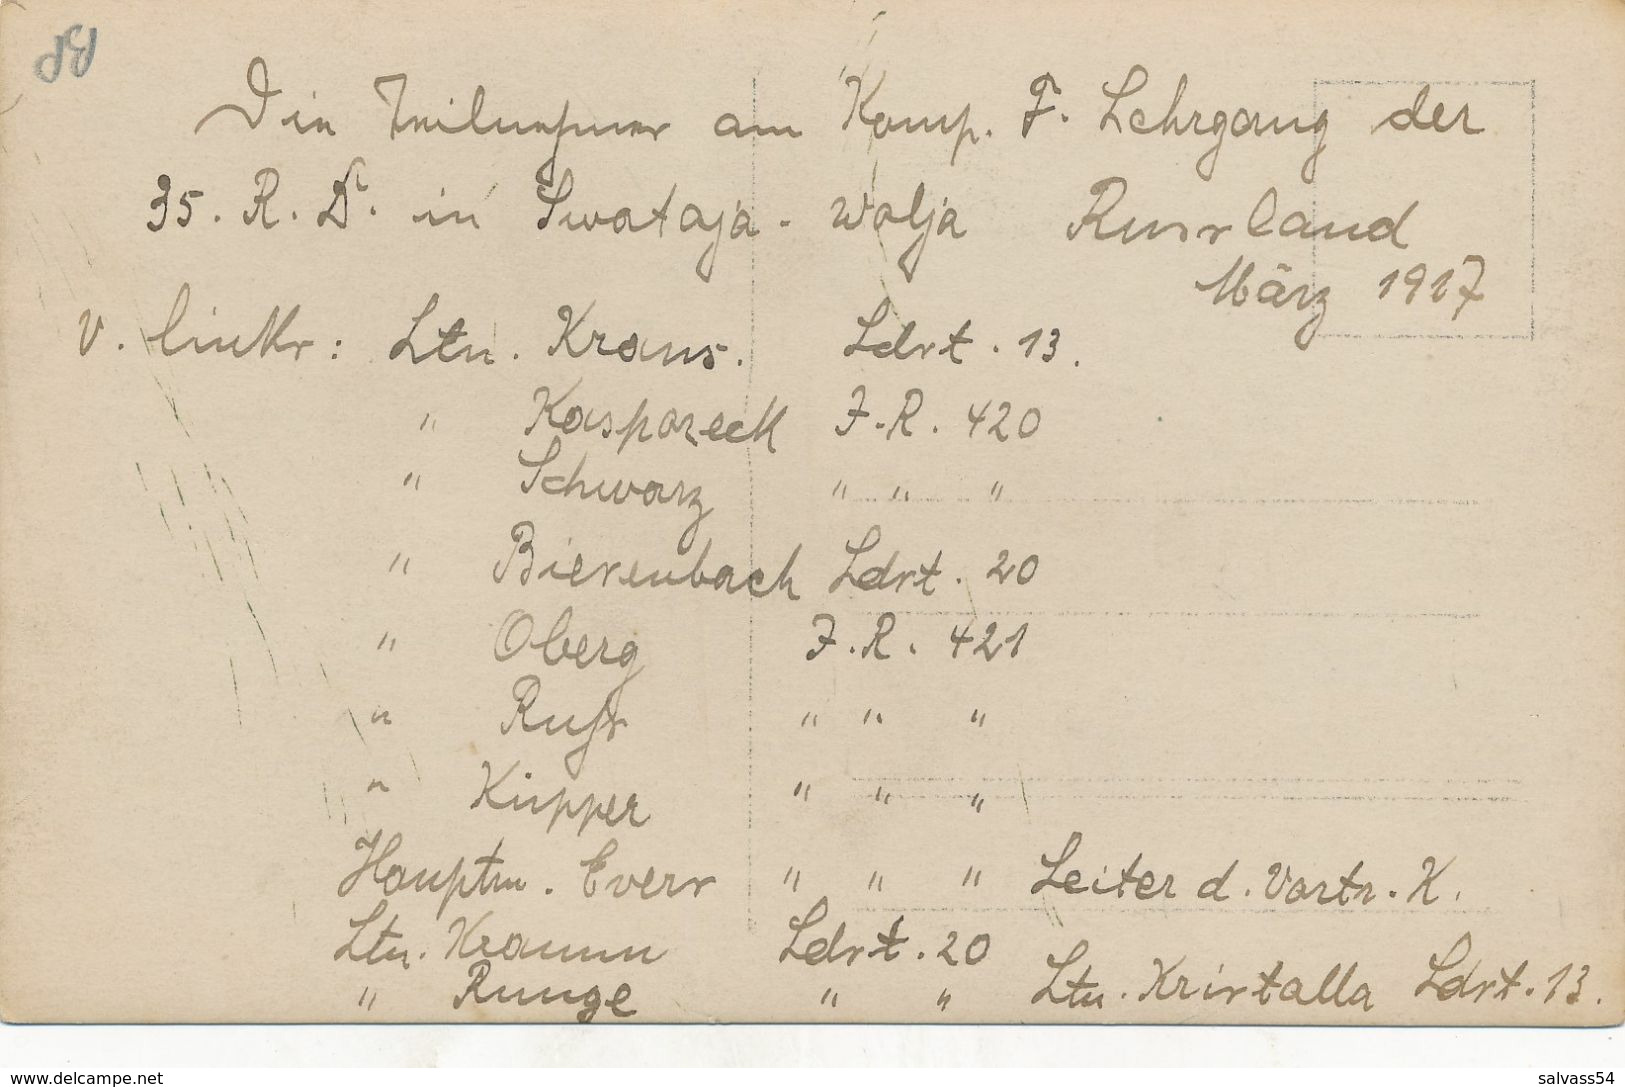 Die Teilnehmer am Komp. F. Lehrgang der
35. R. D. in Swataja - wolja Russland
März 1917
v. links: Ltn. Kraus. Ldst. 13.
" Kaspareck I.R. 420
" Schwarz " " "
" Bierenbach Ldst. 20
" Oberg I.R. 421
" " " "
" Küpper " " "
Hauptm. Evers " " " Leiter d. Vortr. K.
Ltn. Kramm Ldst. 20
" Runge " " Ltn. Kristalla Ldst. 13.
www.delcampe.net
salvass54